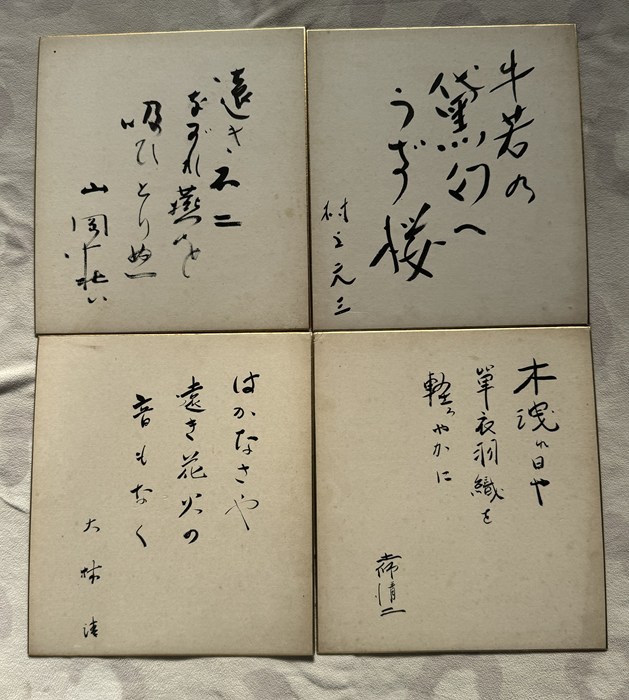 牛若の
黛匂へ
うす桜
村上元三
遠き不二
燕を
吸ひとりぬ
山岡荘八
木洩れ日や
單衣羽織を
軽ろやかに
はかなさや
遠き花火の
音もなく
大林清